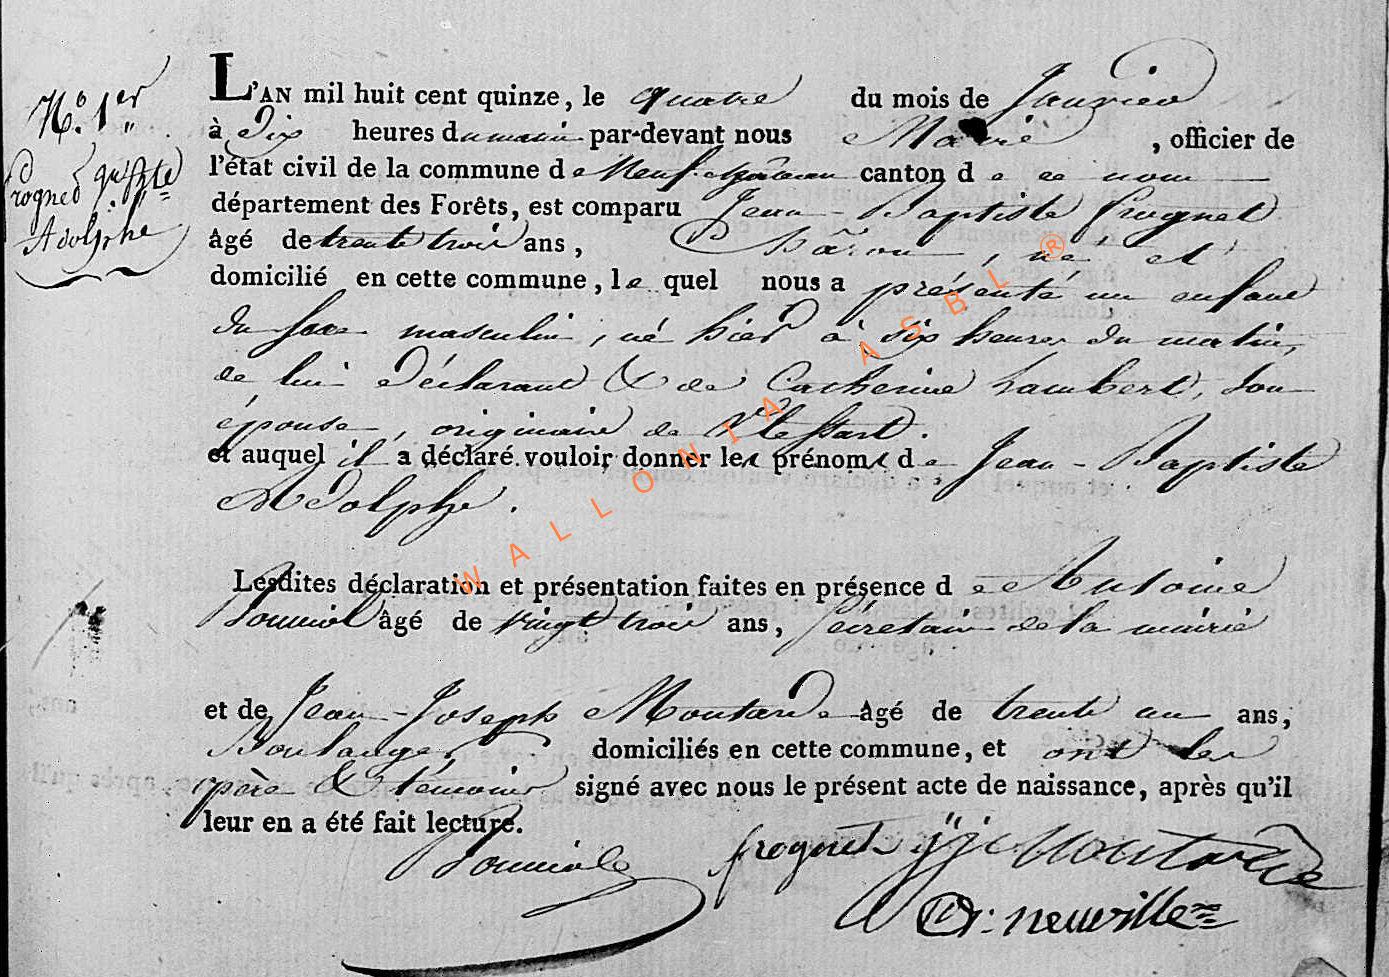 N.º 1.er
Frognet
Adolphe
L'AN mil huit cent quinze, le quatre du mois de Janvier
à dix heures du matin par-devant nous Maire, officier de
l'état civil de la commune de Neufchâteau canton de ce nom
département des Forêts, est comparu Jean-Baptiste frognet
âgé de trente trois ans, Charon, né et
domicilié en cette commune, le quel nous a présenté un enfant
du sexe masculin, né hier à six heures du matin,
de lui déclarant & de Catherine Lambert, son
épouse, originaire de
et auquel il a déclaré vouloir donner les prénoms de Jean-Baptiste
Adolphe.
Lesdites déclaration et présentation faites en présence de Antoine
âgé de vingt trois ans, Sécretair de la mairie
et de Jean-Joseph Moutarde âgé de trente un ans,
Boulanger domiciliés en cette commune, et ont les
père & témoins signé avec nous le présent acte de naissance, après qu'il
leur en a été fait lecture.
frognet jj Moutarde
neuville
WALLONIA ASBL ®